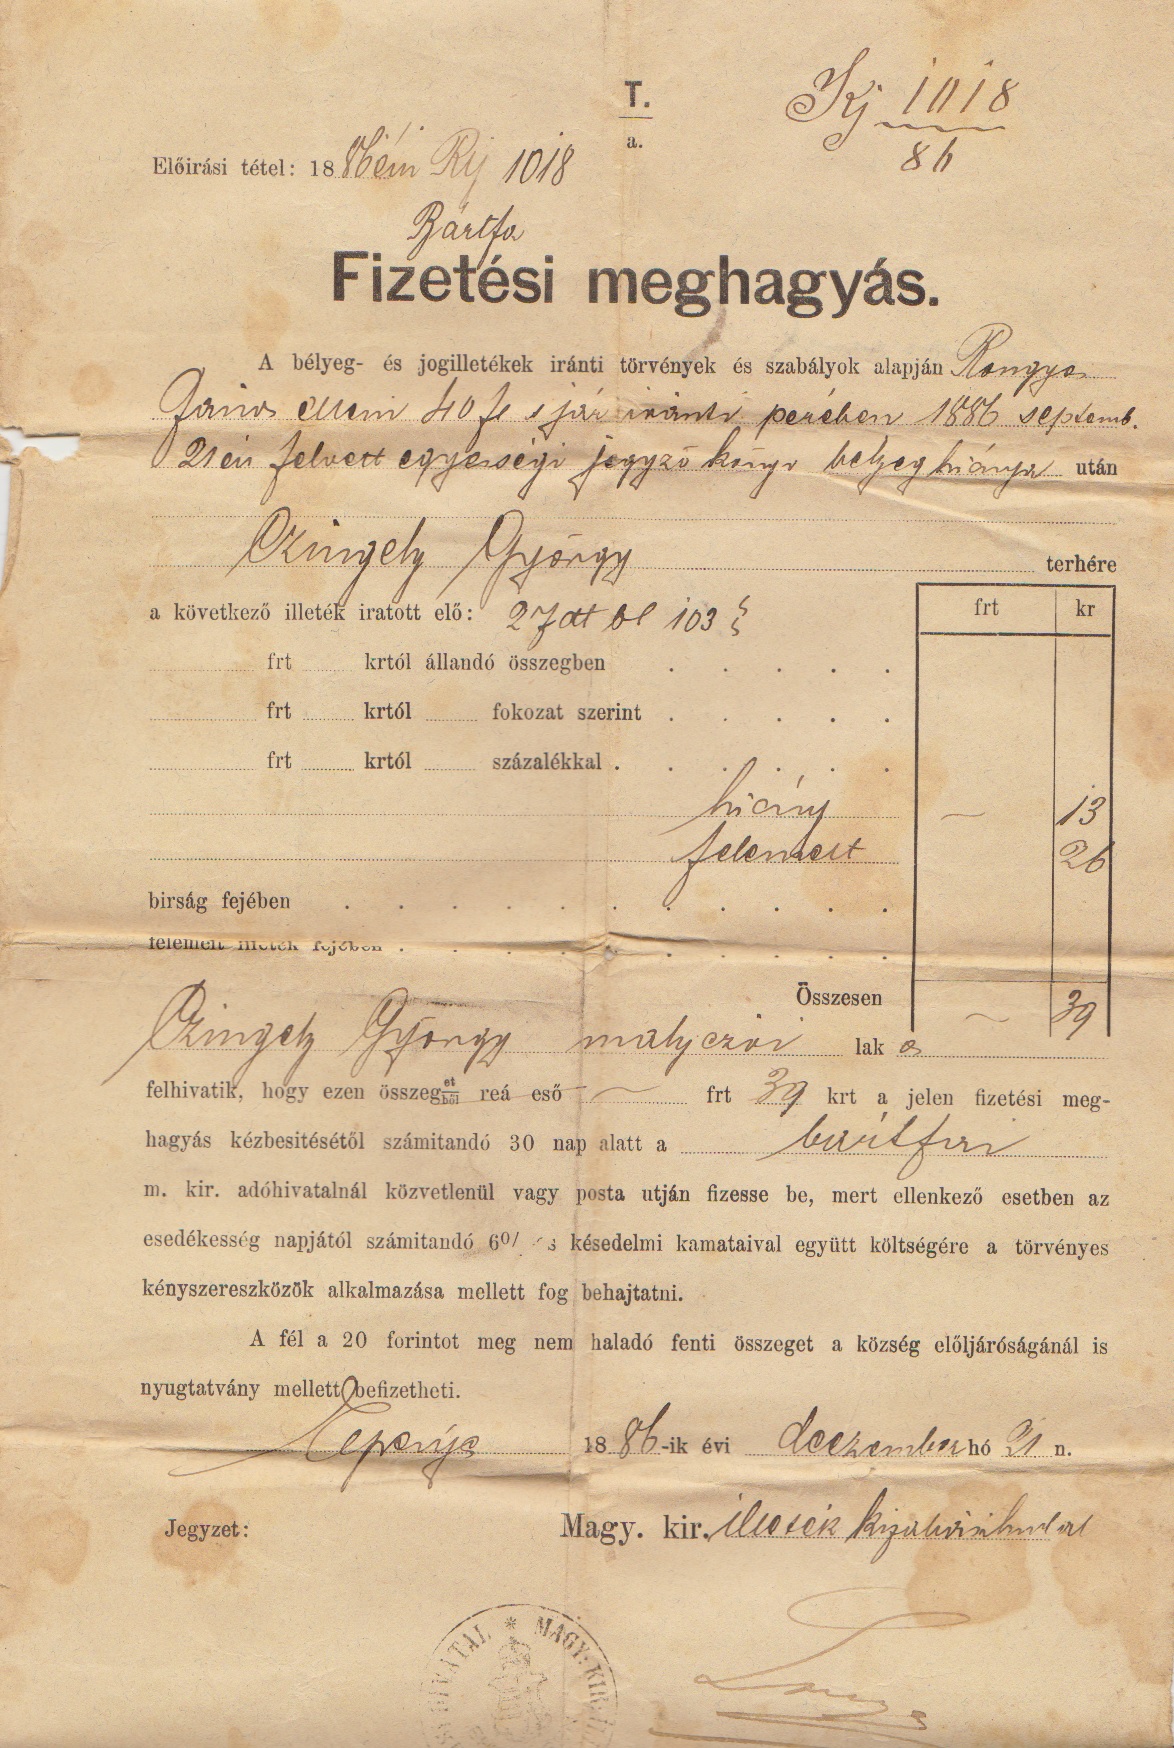 T.
a.
Kj 1018
86
Előirási tétel: 1886 évi Kj 1018
Bártfa
Fizetési meghagyás.
A bélyeg- és jogilletékek iránti törvények és szabályok alapján Rongyos
János elleni 40 f s jár iránti perében 1886 septemb.
21én felvett egyességi jegyző könyv belyeg hiánya után
Czingely György
terhére
a következő illeték iratott elő: 103 §
frt kr
frt krtól állandó összegben
frt krtól fokozat szerint
frt krtól százalékkal
hiány — 13
felemelt 26
birság fejében
felemelt illeték fejében
Összesen — 39
Czingely György malyczói lak os
felhivatik, hogy ezen összeget/ből reá eső — frt 39 krt a jelen fizetési meg-
hagyás kézbesitésétől számitandó 30 nap alatt a bártfai
m. kir. adóhivatalnál közvetlenül vagy posta utján fizesse be, mert ellenkező esetben az
esedékesség napjától számitandó 6% késedelmi kamataival együtt költségére a törvényes
kényszereszközök alkalmazása mellett fog behajtatni.
A fél a 20 forintot meg nem haladó fenti összeget a község előljáróságánál is
nyugtatvány mellett befizetheti.
Eperjes 1886-ik évi deczember hó 21 n.
Jegyzet:
Magy. kir. illeték kiszabási hivatal
HIVATAL * MAGY. KIR.